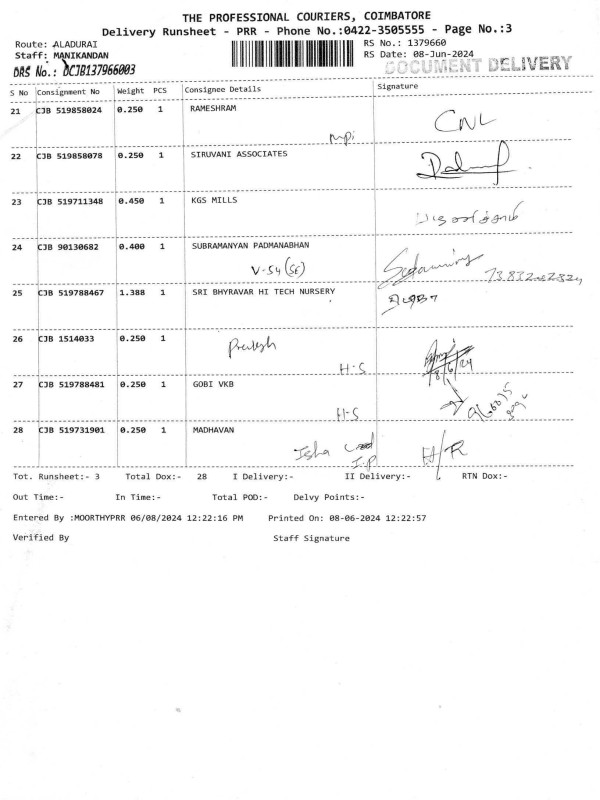 THE PROFESSIONAL COURIERS, COIMBATORE
Delivery Runsheet - PRR - Phone No.:0422-3505555 - Page No.:3
Route: ALADURAI RS No.: 1379660
Staff: MANIKANDAN RS Date: 08-Jun-2024
DRS No.: DCJB137966003 DOCUMENT DELIVERY
S No Consignment No Weight PCS Consignee Details Signature
21 CJB 519858024 0.250 1 RAMESHRAM
CNL
22 CJB 519858078 0.250 1 SIRUVANI ASSOCIATES
23 CJB 519711348 0.450 1 KGS MILLS
24 CJB 90130682 0.400 1 SUBRAMANYAN PADMANABHAN
V-54 (SE)
25 CJB 519788467 1.388 1 SRI BHYRAVAR HI TECH NURSERY
26 CJB 1514033 0.250 1
H-S 8/6/24
27 CJB 519788481 0.250 1 GOBI VKB
H-S
28 CJB 519731901 0.250 1 MADHAVAN
Isha H/R
I.P
Tot. Runsheet:- 3 Total Dox:- 28 I Delivery:- II Delivery:- RTN Dox:-
Out Time:- In Time:- Total POD:- Delvy Points:-
Entered By :MOORTHYPRR 06/08/2024 12:22:16 PM Printed On: 08-06-2024 12:22:57
Verified By Staff Signature